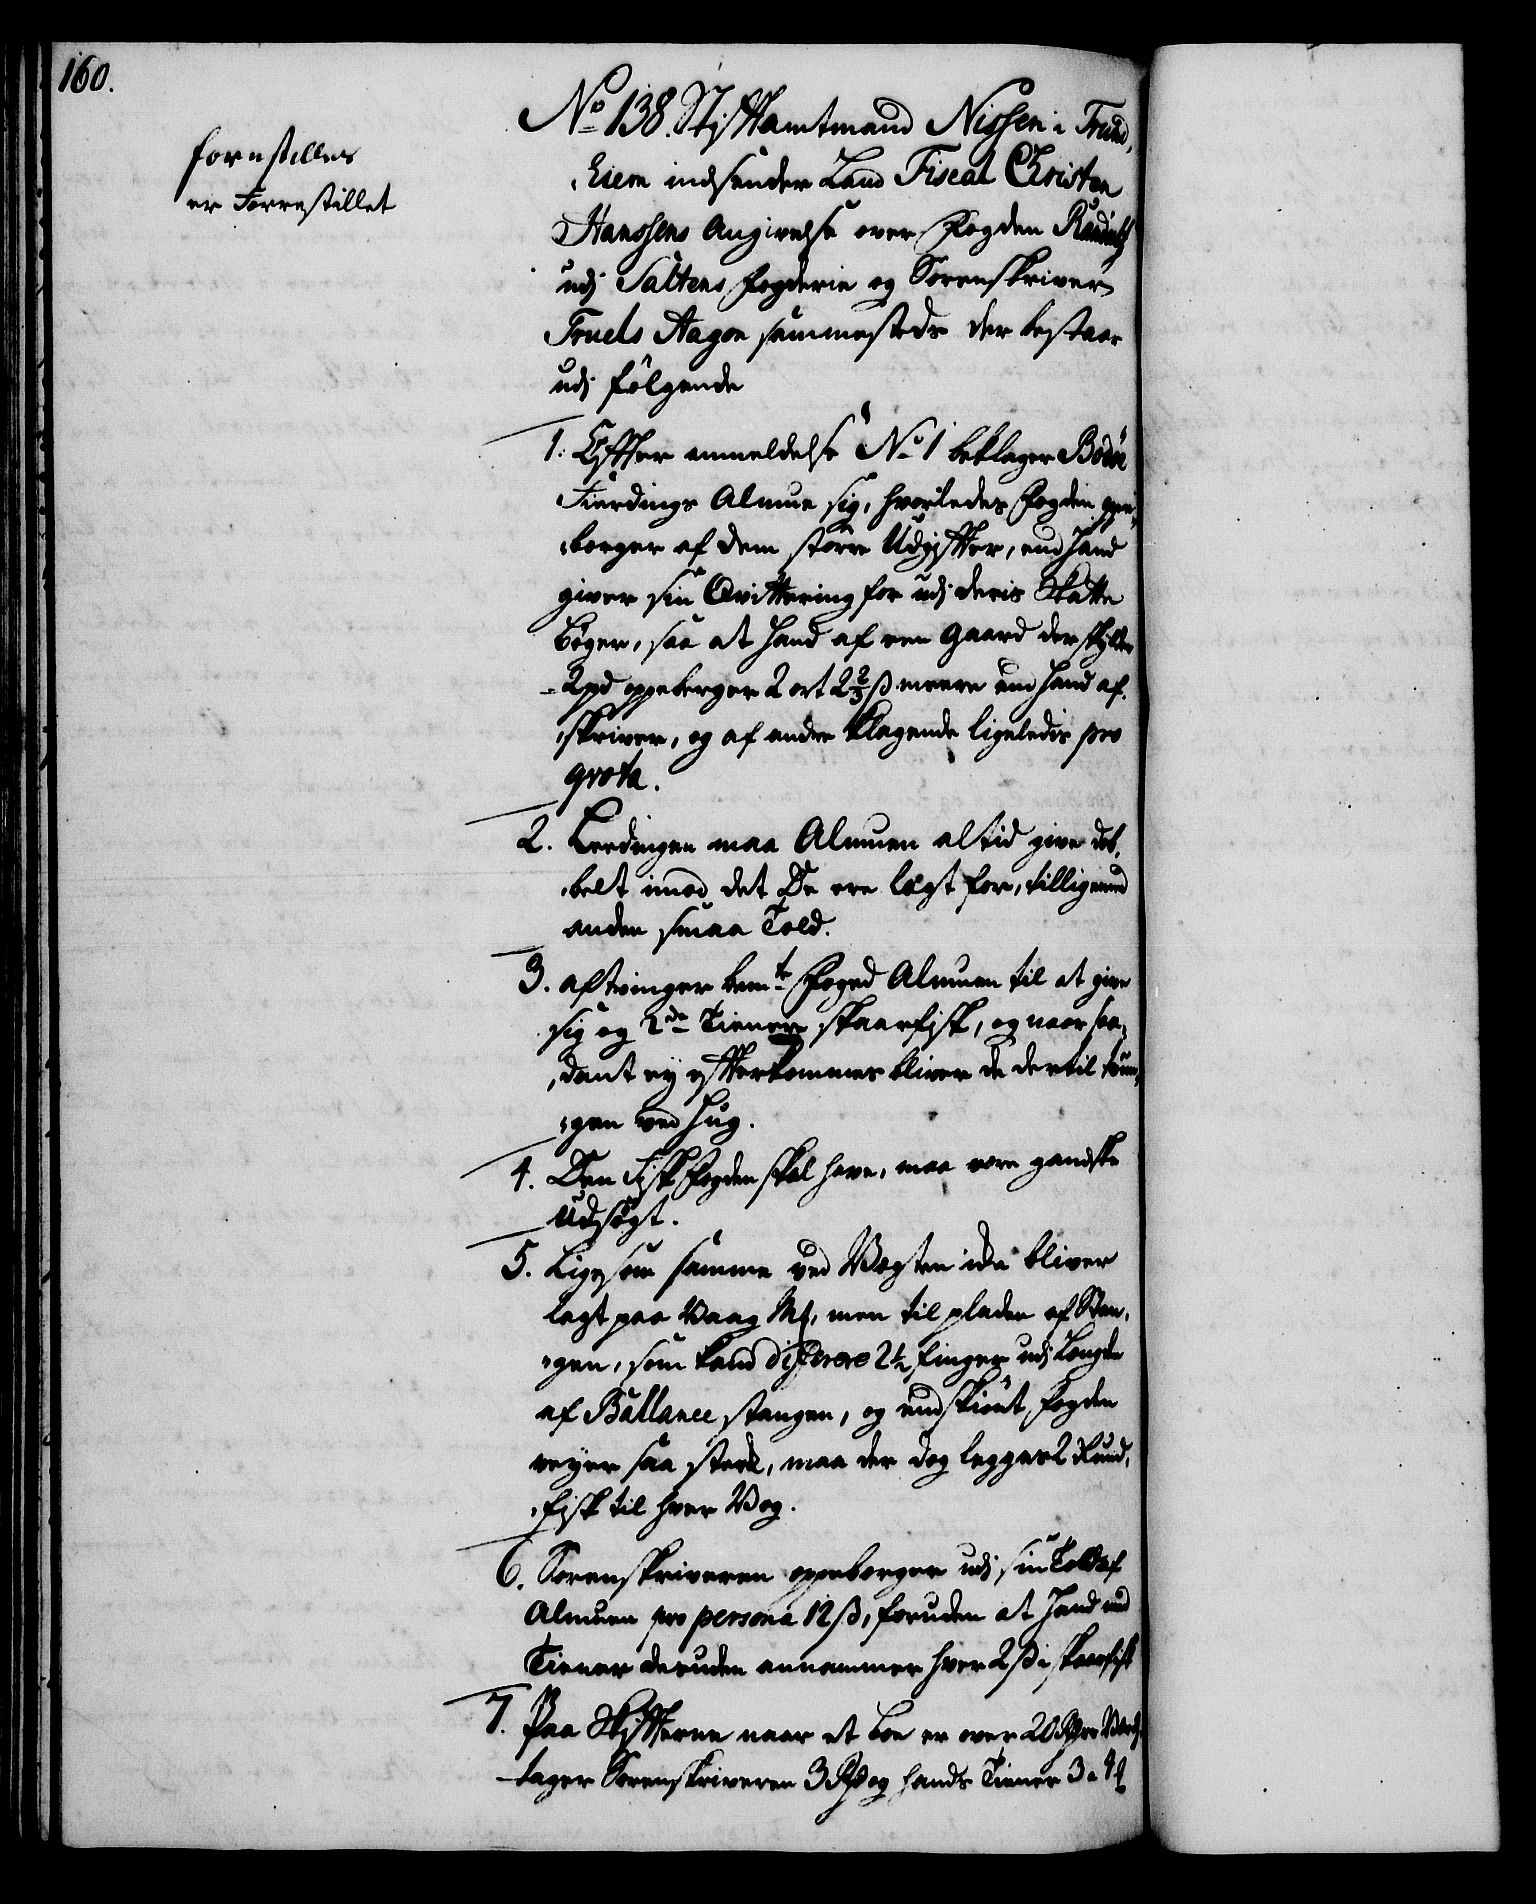 160.
forestilles
er Forrestillet
No 138. Stiftamtmand Nissen i Trund,
,hiem indsender Land Fiscal Christen
Hanssens Angivelse over Fogden
udj Saltens fogderie og Sorenskriver
Truels Aagen sammesteds der bestaar
udj følgende
1. Efter anmeldelse No 1 beklager Bodøe
Fierdings Almue sig, hvorledes Fogden oppe,
,berger af dem større Udgifter, end hand
giver sin Qvittering for udj deris Skatte
bøger, saa at hand af een Gaard der skylder
2 pd oppeberger 2 ort 2 2/3 ß meere end hand af,
,skriver, og af andre klagende ligeledis pro
qvota.
2. Leedingen maa Almuen altid give dob,
,belt imod det De ere lagt for, tilligemed
anden smaa Told.
3. aftvinger bemte Foged Almuen til at give
sig og 2de Tienere skaarfisk, og naar saa,
,dant ey efterkommes bliver de dertil tvun,
,gen ved hug.
4. Den Fisk Fogden skal have, maa være gandske
Udsøgt.
5. Ligesom samme ved Vegten icke bliver
lagt paa Vaag Mk, men til pladen af Stan,
,gen, som kand differere 2 1/2 finger udj Længde
af Ballance stangen, og endskiønt Fogden
veyer saa sterk, maa der dog legges 2 Rund,
,fisk til hver Vog.
6. Sorenskriveren oppeberger udj sin Told af
Almuen pro persona 12 ß, foruden at hand med
Tiener desuden annammer hver 2 ß i skaarfisk
7. Paa Skifterne naar et boe er over 20 Rdr Værd,
tager Sorenskriveren 3 Rd og hands Tiener 3 a 4